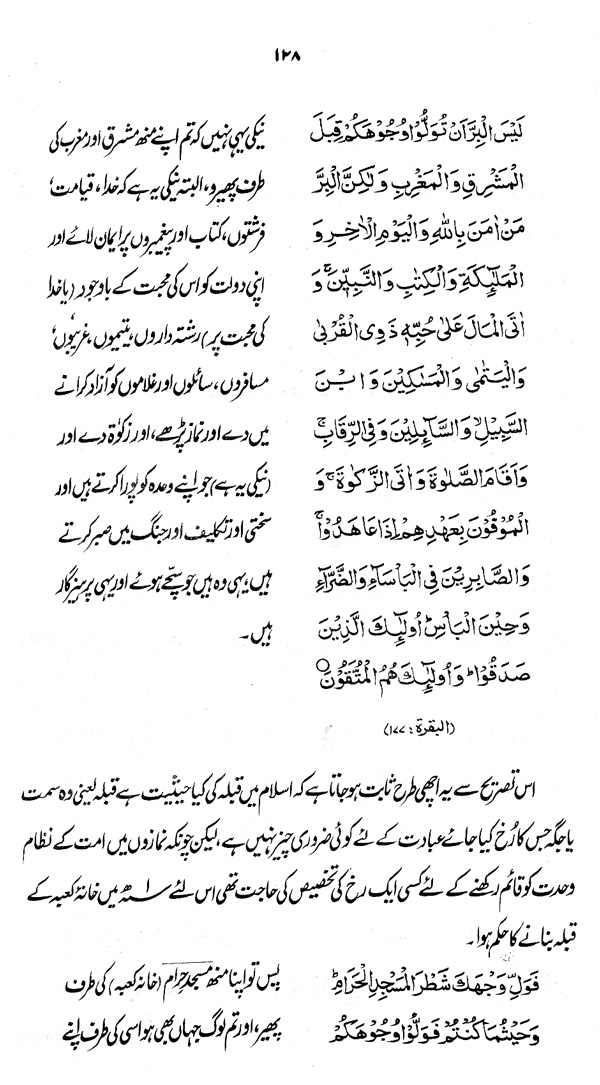 ۱۲۸
لَيْسَ الْبِرَّ اَنْ تُوَلُّوْا وُجُوْهَكُمْ قِبَلَ
الْمَشْرِقِ وَالْمَغْرِبِ وَلٰكِنَّ الْبِرَّ
مَنْ اٰمَنَ بِاللّٰهِ وَالْيَوْمِ الْاٰخِرِ وَ
الْمَلٰٓئِكَةِ وَالْكِتٰبِ وَالنَّبِيّٖنَ ۚ وَ
اٰتَى الْمَالَ عَلٰى حُبِّهٖ ذَوِى الْقُرْبٰى
وَالْيَتٰمٰى وَالْمَسٰكِيْنَ وَابْنَ
السَّبِيْلِ ۙ وَالسَّآئِلِيْنَ وَفِى الرِّقَابِ ۚ
وَاَقَامَ الصَّلٰوةَ وَاٰتَى الزَّكٰوةَ ۚ وَ
الْمُوْفُوْنَ بِعَهْدِهِمْ اِذَا عَاهَدُوْا ۚ
وَالصَّابِرِيْنَ فِى الْبَاْسَآءِ وَالضَّرَّآءِ
وَحِيْنَ الْبَاْسِ ؕ اُولٰٓئِكَ الَّذِيْنَ
صَدَقُوْا ؕ وَاُولٰٓئِكَ هُمُ الْمُتَّقُوْنَ ○
(البقرة: ۱۷۷)
نیکی یہی نہیں کہ تم اپنے منھ مشرق اور مغرب کی
طرف پھیرو، البتہ نیکی یہ ہے کہ خدا، قیامت،
فرشتوں، کتاب اور پیغمبروں پر ایمان لائے اور
اپنی دولت کو اس کی محبت کے باوجود (یا خدا
کی محبت پر) رشتہ داروں، یتیموں، غریبوں،
مسافروں، سائلوں اور غلاموں کو آزاد کرانے
میں دے اور نماز پڑھے، اور زکوٰۃ دے اور
(نیکی یہ ہے) جو اپنے وعدہ کو پورا کرتے ہیں اور
سختی اور تکلیف اور جنگ میں صبر کرتے
ہیں، یہی وہ ہیں جو سچے ہوئے اور یہی پرہیزگار
ہیں۔
اس تصریح سے یہ اچھی طرح ثابت ہو جاتا ہے کہ اسلام میں قبلہ کی کیا حیثیت ہے قبلہ یعنی وہ سمت
یا جگہ جس کا رُخ کیا جائے عبادت کے لئے کوئی ضروری چیز نہیں ہے، لیکن چونکہ نمازوں میں امت کے نظام
وحدت کو قائم رکھنے کے لئے کسی ایک رخ کی تخصیص کی حاجت تھی اس لئے ۱ ھ میں خانۂ کعبہ کے
قبلہ بنانے کا حکم ہوا۔
فَوَلِّ وَجْهَكَ شَطْرَ الْمَسْجِدِ الْحَرَامِ ؕ
وَحَيْثُمَا كُنْتُمْ فَوَلُّوْا وُجُوْهَكُمْ
پس تو اپنا منھ مسجدِ حرام (خانہ کعبہ) کی طرف
پھیر، اور تم لوگ جہاں بھی ہو اسی کی طرف اپنے